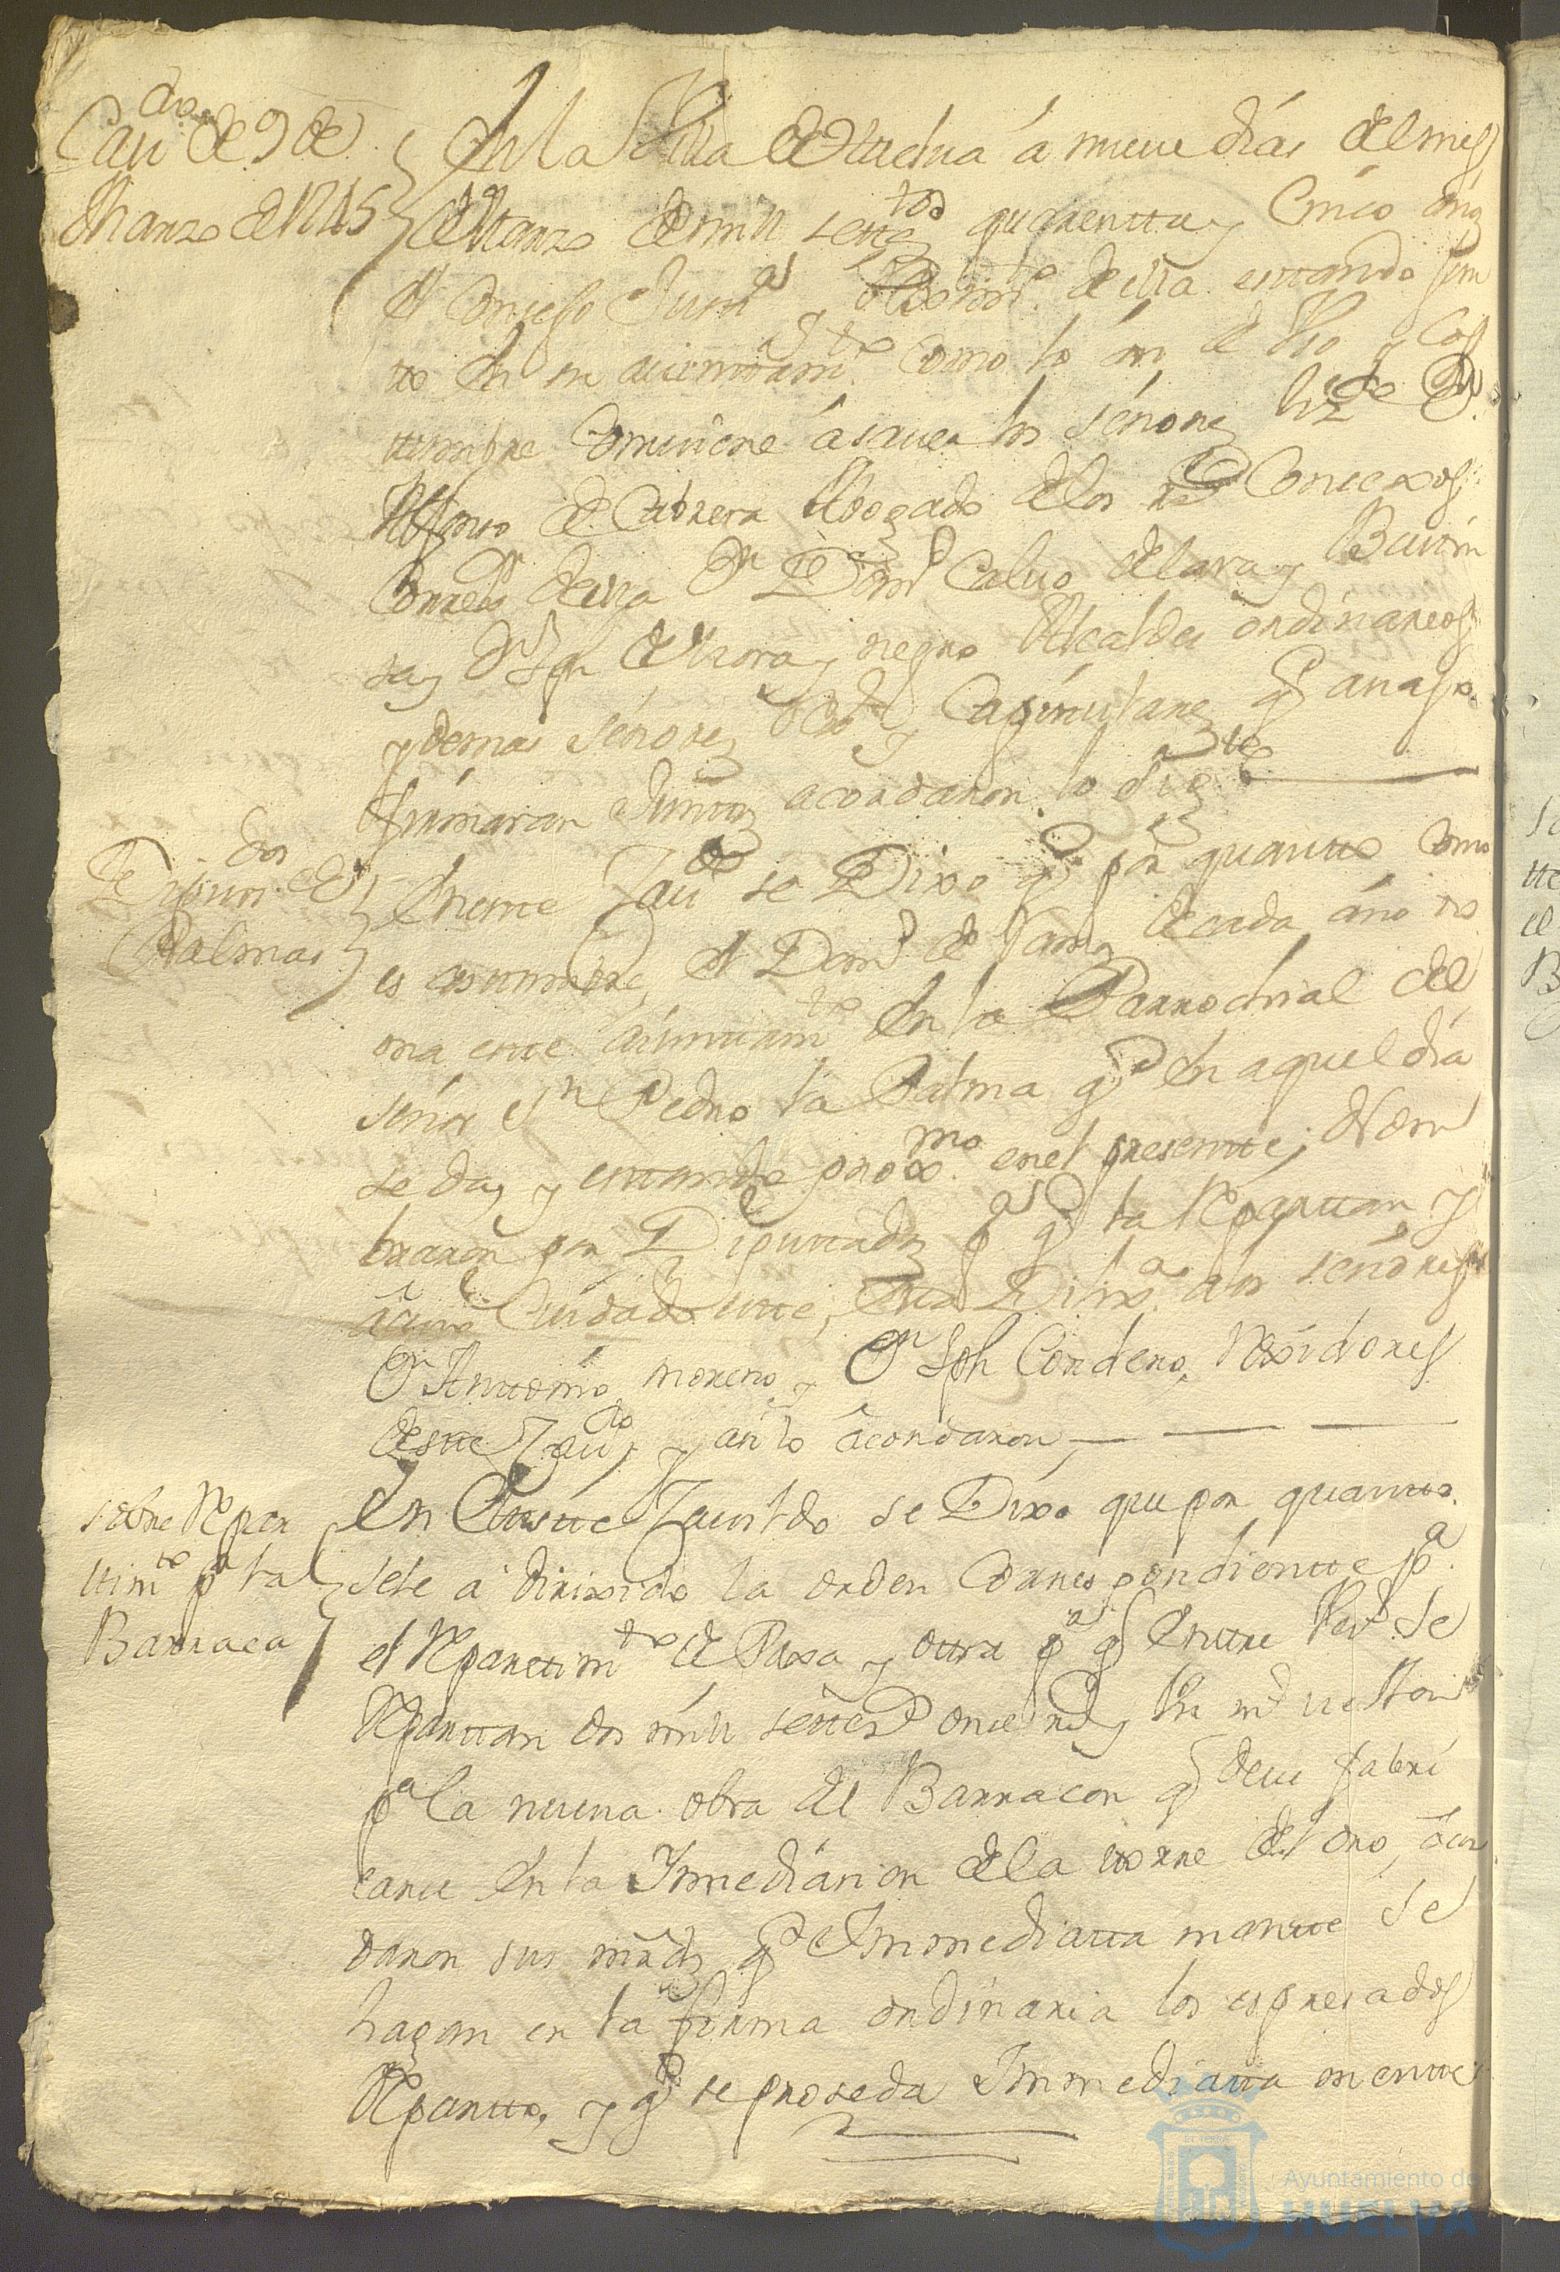 Cavdo. de 9 de
Marzo de 1745
En la Villa de Huelva á nueve días del mes
de Marzo de mill settos quarentta y Cinco años
el Consejo Justa y Reximto. de ella estando jun
tto en su aiuntamto. como lo án de Vso y Cos
tumbre Combiene á saver los señores Lizdo. Dn.
Alfonso de Cabrera Abogado de los Rs Consexos
Correxor de ella Dn Domo Calvo de Lara y
y Dn Jph de Mora y negro Alcaldes ordinareos
y demas señores Capitulares q avajo
firmaran Junttos acordaron lo sigte
Diputdos de
Palmas
En este Cavdo se Dixo q por quantto como
es costumbre, el Domo de Ramos de cada año to
ma este aiuntamto en la Parrochial del
señor Sn Pedro la Palma q en aquel día
se da, y estando proxmo. en el presente; Nom
braron por Diputtados pa q la Repartan y
á cuio Cuidado este, esta Dilixa a los señores
Dn Anttonio moreno y Dn Jph Cordero, Rexidores
deste Cavdo, y asi lo acordaron
sobre Repar
ttimto pa la
Barraca
En Este Cavildo se Dixo que por quantto
se le a dirixido la orden Correspondientte pa.
el Reparttimto de Paxa y ottra pa q Enttre Vezs. se
Reparttan dos mill settes onze rs y mrs vellon
pa la nueva obra del Barracon q deve fabri
carce En la Inmediasion de la ttorre del oro, acor
daron sus mrds q Immediatta mentte se
hagan en la forma ordinaria los expresados
Reparttos, y q se proseda Immediatta mentte
Ayuntamiento de
HUELVA